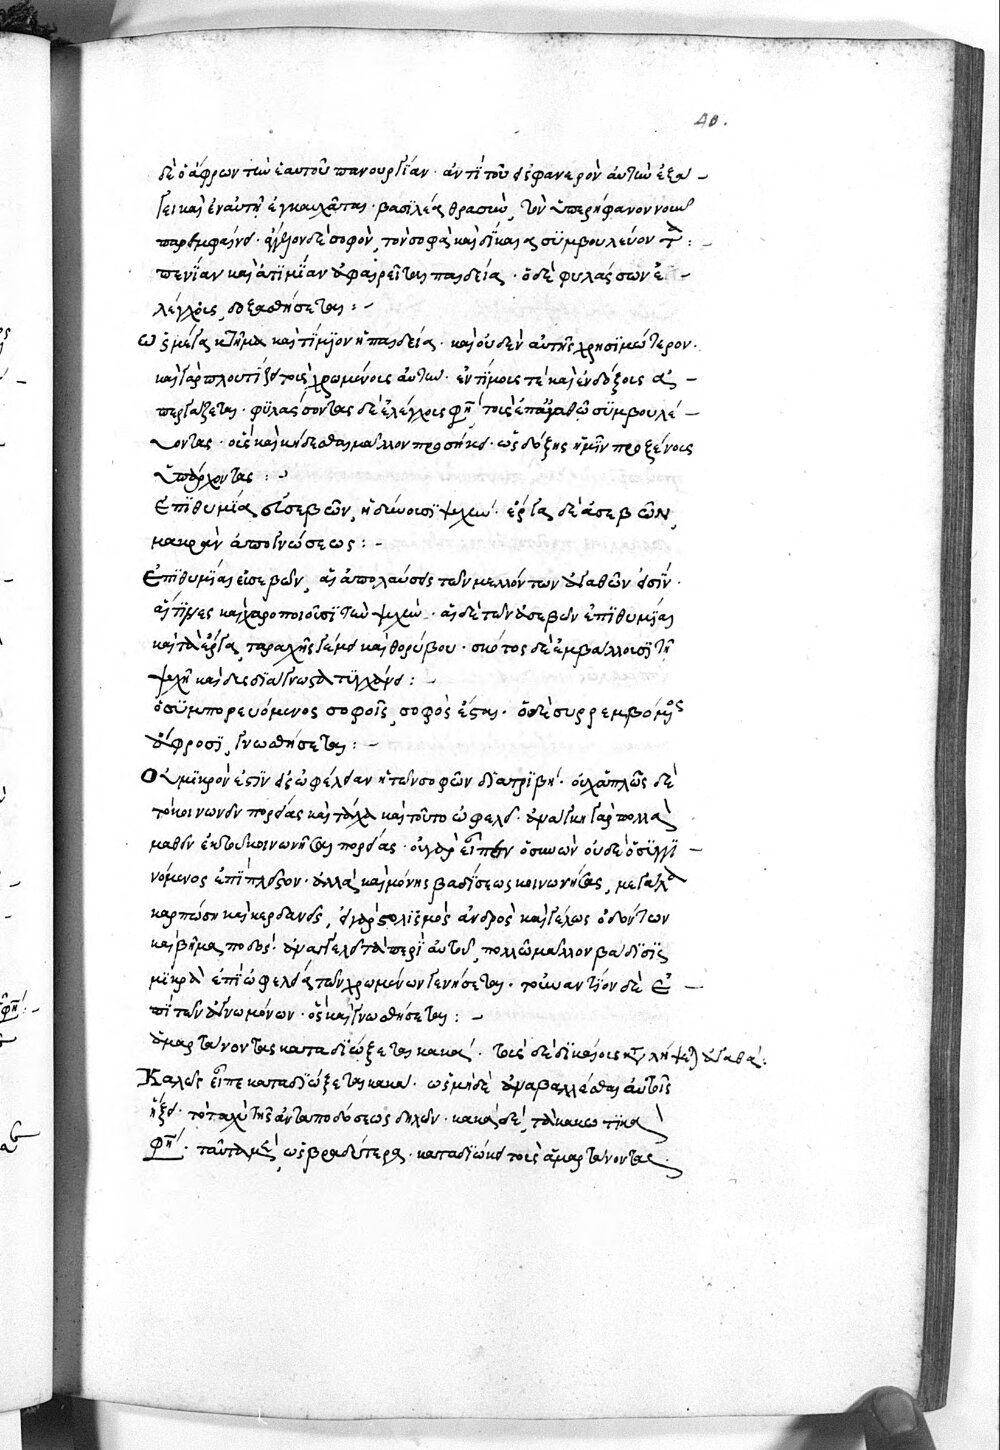 40.
δὲ ὁ ἄφρων τὴν ἑαυτοῦ πανουργίαν· ἀντὶ τοῦ εἰς φανερὸν αὐτὴν ἐξά–
γει καὶ ἐν αὐτῇ ἐγκαυχᾶται· βασιλέα θρασὺν, τὸν ὑπερήφανον νοῦν
παρεμφαίνει· ἄγγελον δὲ σοφὸν, τὸν σοφὰ καὶ δίκαια συμβουλεύοντα:–
πενίαν καὶ ἀτιμίαν ἀφαιρεῖται παιδεία· ὁ δὲ φυλάσσων ἐ–
λέγχοις, δοξασθήσεται:–
ὡς μέγα κτῆμα καὶ τίμιον ἡ παιδεία· καὶ οὐδὲν αὐτῆς χρησιμώτερον·
καὶ γὰρ πλουτίζει τοὺς χρωμένους αὐτῇ· ἐντίμους τὲ καὶ ἐνδόξους ἀ–
περγάζεται· φυλάσσοντας δὲ ἐλέγχους φησὶ, τοὺς ἐπ' ἀγαθῶ συμβουλεύ–
οντας· οἷς καὶ κήδεσθαι μᾶλλον προσήκει· ὡς δόξης ἡμῖν προξένοις
ὑπάρχοντας:–
Ἐπιθυμίαι εὐσεβῶν, ἡδύνουσι ψυχήν· ἔργα δὲ ἀσεβῶν,
μακρὰν ἀπὸ γνώσεως:–
Ἐπιθυμίαι εὐσεβῶν, αἱ ἀπολαύσεις τῶν μελλόντων ἀγαθῶν εἰσίν·
αἵτινες καὶ χαροποιοῦσι τὴν ψυχήν· αἱ δὲ τῶν ἀσεβῶν ἐπιθυμίαι
καὶ τὰ ἔργα, ταραχῆς γέμει καὶ θορύβου· σκότος δὲ ἐμβάλλουσι τῇ
ψυχῇ καὶ
ὁ συμπορευόμενος σοφοῖς, σοφὸς ἔσται· ὁ δὲ συρρεμβόμενος
ἄφροσι, γνωσθήσεται:–
Οὐ μικρὸν ἐστὶν εἰς ὠφέλειαν ἡ τῶν σοφῶν διατριβή· οὐχ ἁπλῶς δὲ
τὸ κοινωνεῖν πορείας καὶ καὶ τοῦτο ὠφελεῖ· ἀνάγκη γὰρ πολλὰ
μαθεῖν ἐκ τοῦ κοινωνῆσαι πορείας· οὐ γὰρ εἶπεν ὁ συνὼν οὐδὲ ὁ συγγι–
νόμενος ἐπὶ πλεῖον· ἀλλὰ καὶ μόνης βαδίσεως κοινωνήσας, μεγάλα
καρπώσῃ καὶ κερδανεῖς, εἰ γὰρ στολισμὸς ἀνδρὸς καὶ γέλως ὀδόντων
καὶ βῆμα ποδὸς· ἀναγγελεῖ τὰ περὶ αὐτοῦ, πολλῶ μᾶλλον βαδίσις
μικρὰ ἐπὶ ὠφελείας τῶν χρωμένων γενήσεται· τοὐναντίον δὲ ἐ–
πὶ τῶν ἀγνωμόνων· ὃς καὶ γνωσθήσεται:–
ἁμαρτάνοντας καταδιώξεται κακά· τοὺς δὲ δικαίους καταλήψεται ἀγαθά:
Καλῶς εἶπε καταδιώξεται κακά· ὡς μηδὲ ἀναβάλλεσθαι αὐτοῖς
ἥξει· τὸ ταχὺ τῆς ἀνταποδόσεως δηλῶν· κακὰ δὲ, τὰ κακωτικὰ
φησί· ταῦτα μὲν, ὡς βραδύτερα· καταδιώκει τοὺς ἁμαρτάνοντας·